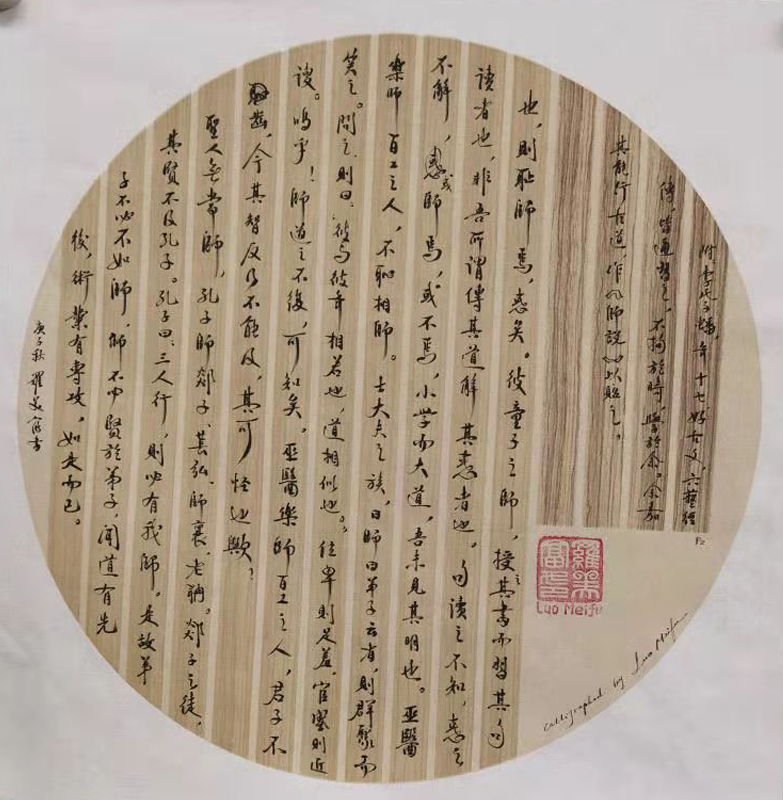 附：李氏子蟠，年十七，好古文，六藝經
傳，皆通習之，不拘於時，學於余。余嘉
其能行古道，作師說以貽之。
也，則恥師焉，惑矣。彼童子之師，授之其書而習其句
讀者也，非吾所謂傳其道解其惑者也。句讀之不知，惑之
不解，惑或師焉，或不焉，小学而大道，吾未見其明也。巫醫
樂師百工之人，不恥相師。士大夫之族，曰師曰弟子云者，則群聚而
笑之。問之，則曰：彼与彼年相若也，道相似也。位卑則足羞，官盛則近
諛。嗚乎！師道之不復，可知矣。巫醫樂師百工之人，君子不
齒，今其智反乃不能及，其可怪也歟！
聖人無常師，孔子師郯子、萇弘、師襄、老聃。郯子之徒，
其賢不及孔子。孔子曰：三人行，則必有我師。是故弟
子不必不如師，師不必賢於弟子，聞道有先
後，術業有專攻，如是而已。
庚子秋 羅美富書
P2
羅美富印
Luo Meifu
Calligraphed by Luo Meifu